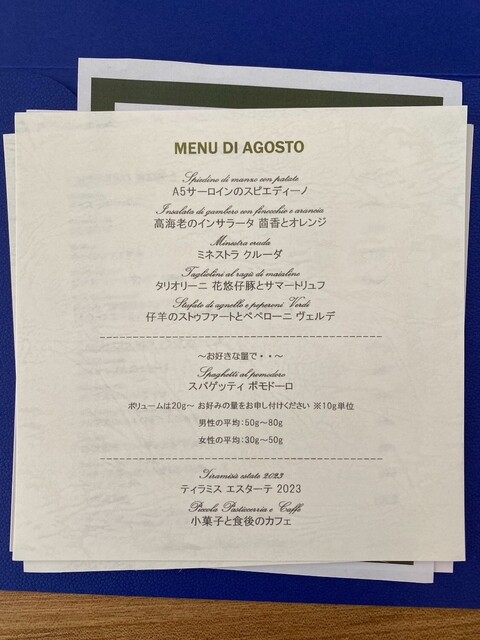 MENU DI AGOSTO
Spiedino di manzo con patate
A5サーロインのスピエディーノ
Insalata di gambero con finocchio e arancia
高海老のインサラータ 茴香とオレンジ
Minestra cruda
ミネストラ クルーダ
Tagliolini al ragù di maialino
タリオリーニ 花悠仔豚とサマートリュフ
Stufato di agnello e peperoni Verdi
仔羊のストゥファートとペペローニ ヴェルデ
～お好きな量で・・～
Spaghetti al pomodoro
スパゲッティ ポモドーロ
ボリュームは20g～ お好みの量をお申し付けください ※10g単位
男性の平均：50g～80g
女性の平均：30g～50g
Tiramisù estate 2023
ティラミス エスターテ 2023
Piccola Pasticcerria e Caffe
小菓子と食後のカフェ